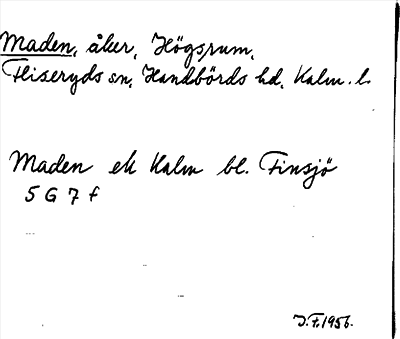 Maden, åker, Högsrum,
Fliseryds sn, Handbörds hd, Kalm. l.
Maden ek Kalm bl. Finsjö
5 G 7 f
J.F. 1956.